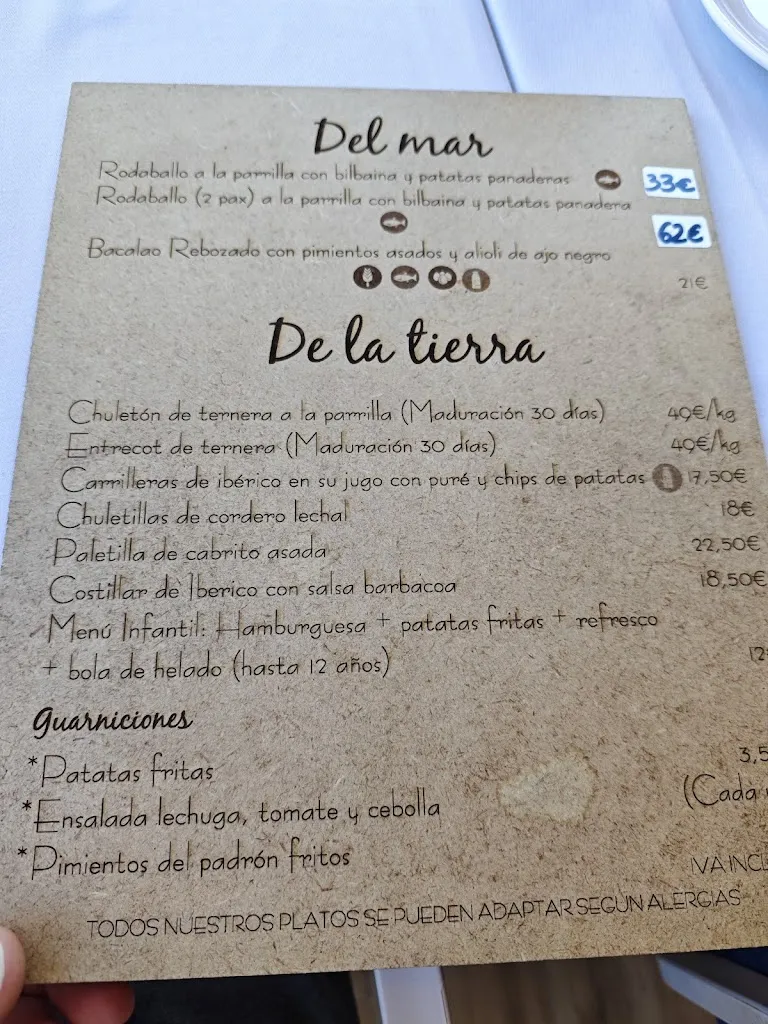 Del mar
Rodaballo a la parrilla con bilbaina y patatas panaderas 33€
Rodaballo (2 pax) a la parrilla con bilbaina y patatas panadera
62€
Bacalao Rebozado con pimientos asados y alioli de ajo negro
21€
De la tierra
Chuletón de ternera a la parrilla (Maduración 30 días) 49€/kg
Entrecot de ternera (Maduración 30 días) 49€/kg
Carrilleras de ibérico en su jugo con puré y chips de patatas 17,50€
Chuletillas de cordero lechal 18€
Paletilla de cabrito asada 22,50€
Costillar de Iberico con salsa barbacoa 18,50€
Menú Infantil: Hamburguesa + patatas fritas + refresco
+ bola de helado (hasta 12 años) 12
Guarniciones
*Patatas fritas 3,5
*Ensalada lechuga, tomate y cebolla (Cada
*Pimientos del padrón fritos
IVA INCL
TODOS NUESTROS PLATOS SE PUEDEN ADAPTAR SEGUN ALERGIAS